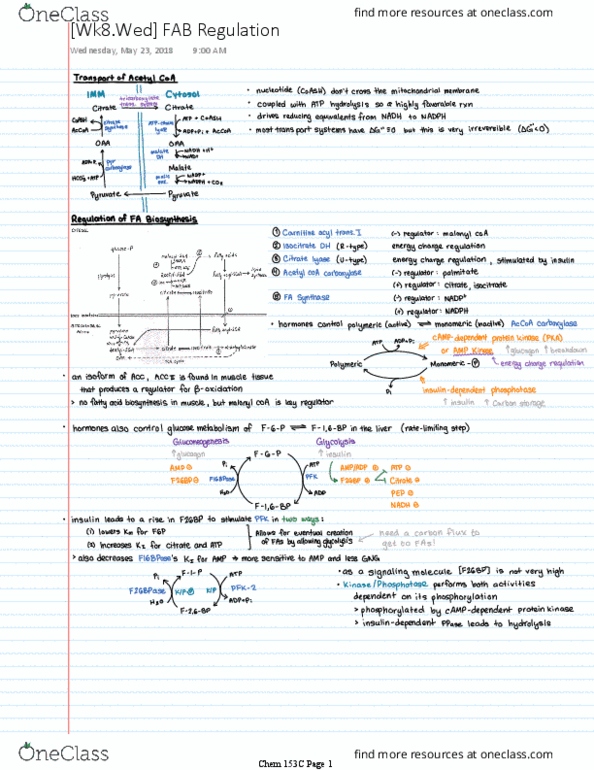 OneClass
find more resources at oneclass.com
[Wk8.Wed] FAB Regulation
Wednesday, May 23, 2018 9:00 AM
Transport of Acetyl CoA
IMM Cytosol
tricarboxylate trans. system
Citrate Citrate
CoASH
AcCoA
citrate synthase
ATP-citrate lyase
ATP + CoASH
ADP+Pi + AcCoA
OAA OAA
malate DH
NADH + H+
NAD+
ADP+Pi
HCO3+ATP
pyr carboxylase
Malate
malic enz.
NADP+
NADPH + CO2
Pyruvate Pyruvate
• nucleotide (CoASH) don't cross the mitochondrial membrane
• coupled with ATP hydrolysis so a highly favorable rxn
• drives reducing equivalents from NADH to NADPH
• most transport systems have ΔG°'=0 but this is very irreversible (ΔG°'<0)
Regulation of FA Biosynthesis
CYTOSOL
glucose-P
glycolysis
pyruvate
malonyl-CoA
fatty acids
acetyl-CoA
citrate
TCA cycle
① Carnitine acyl trans. I (-) regulator: malonyl CoA
② Isocitrate DH (R-type) energy charge regulation
③ Citrate lyase (U-type) energy charge regulation, stimulated by insulin
④ Acetyl CoA carboxylase (-) regulator: palmitate
(+) regulator: citrate, isocitrate
⑤ FA Synthase (-) regulator: NADP+
(+) regulator: NADPH
• hormones control polymeric (active) ⇌ monomeric (inactive) AcCoA carboxylase
cAMP-dependent protein kinase (PKA)
or AMP Kinase ↑ glucagon ↑ breakdown
↑ energy charge regulation
ATP ADP+Pi
Polymeric Monomeric-Ⓟ
Pi
insulin-dependent phosphatase
↑ insulin ↑ carbon storage
• an isoform of ACC, ACC II is found in muscle tissue
that produces a regulator for β-oxidation
> no fatty acid biosynthesis in muscle, but malonyl CoA is key regulator
• hormones also control glucose metabolism of F-6-P ⇌ F-1,6-BP in the liver (rate-limiting step)
Gluconeogenesis Glycolysis
↑ glucagon F-6-P ↑ insulin
AMP ⊖
F26BP ⊖
Pi
F16BPase
H2O
ATP
PFK
ADP
AMP/ADP ⊕ ATP ⊖
F26BP ⊕ Citrate ⊖
PEP ⊖
NADH ⊖
F-1,6-BP
• insulin leads to a rise in F26BP to stimulate PFK in two ways:
(1) lowers Km for F6P
(2) increases KI for citrate and ATP
Allows for eventual creation
of FAs by allowing glycolysis
need a carbon flux to
get to FAs!
> also decreases F16BPase's KI for AMP → more sensitive to AMP and less GNG
F-1-P
Pi ATP
F26BPase K/P K/P PFK-2
H2O ADP+Pi
F-2,6-BP
• as a signaling molecule [F26BP] is not very high
• Kinase/Phosphatase performs both activities
dependent on its phosphorylation
> phosphorylated by cAMP-dependent protein kinase
> insulin-dependent PPase leads to hydrolysis
OneClass
Chem 153C Page 1
find more resources at oneclass.com